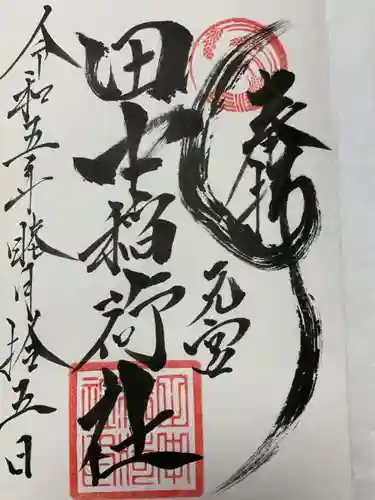 奉拝
元宮
田稲荷社
令和五年睦月拾五日